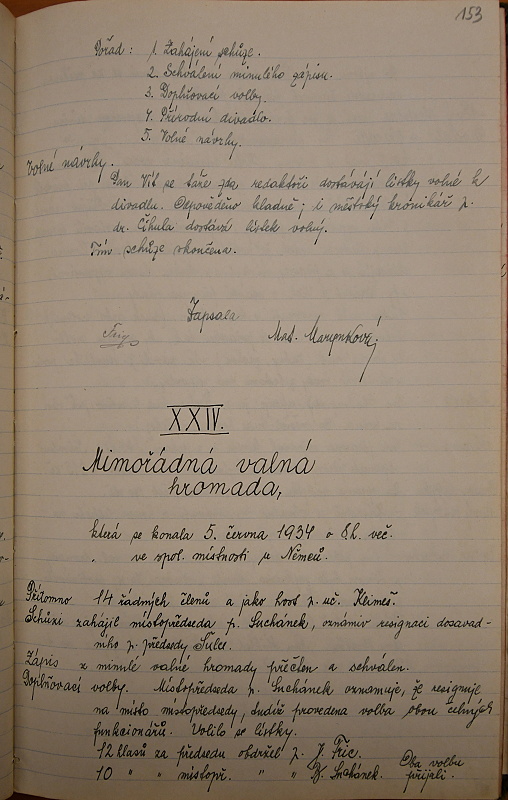 153
Pořad: 1. Zahájení schůze.
2. Schválení minulého zápisu.
3. Doplňovací volby.
4. Přírodní divadlo.
5. Volné návrhy.
Volné návrhy.
Pan Vít se táže zda, redaktoři dostávají lístky volné k
divadlu. Odpověděno kladně; i městský kronikář p.
dr. Čihula dostává lístek volný.
Tím schůze skončena.
Zapsala
Mat.
XXIV.
Mimořádná valná
hromada,
která se konala 5. června 1934 o 8 h. več.
ve spol. místnosti u Němců.
Přítomno 14 řádných členů a jako host p. uč. Klimeš.
Schůzi zahájil místopředseda p. Suchánek, oznámiv resignaci dosavad-
ního p. předsedy Šulce.
Zápis z minulé valné hromady přečten a schválen.
Doplňovací volby. Místopředseda p. Suchánek oznamuje, že resignuje
na místo místopředsedy, tudíž provedena volba obou čelných
funkcionářů. Volilo se lístky.
12 hlasů za předsedu obdržel p. J. Fric.
10 " " místopř. " " Suchánek. Oba volbu
přijali.